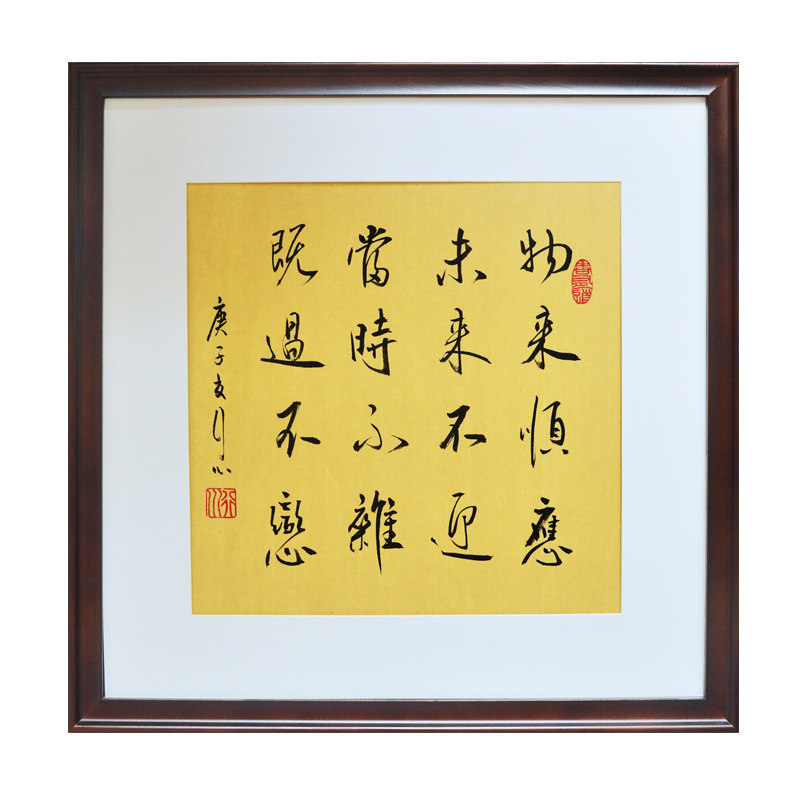 物来順應
未来不迎
當時不雜
既過不戀
庚子友月心